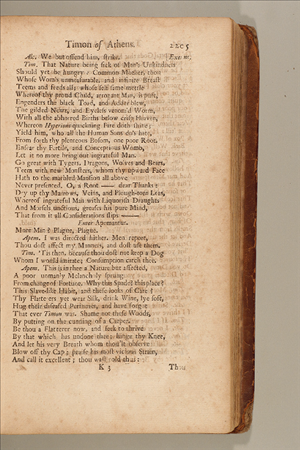 Timon of Athens. 2205
Alc. We but offend him, strike. Exeunt.
Tim. That Nature being sick of Man's Unkindness
Should yet be hungry! Common Mother, thou
Whose Womb unmeasurable, and infinite Breast
Teems and feeds all; whose self same mettle
Whereof thy proud Child, arrogant Man, is puft,
Engenders the black Toad, and Adder blew,
The gilded Newt, and Eyeless venom'd Worm,
With all the abhorred Births below crisp Heaven,
Whereon Hyperion's quickning Fire doth shine;
Yield him, who all the Human Sons do's hate,
From forth thy plenteous Bosom, one poor Root,
Ensear thy Fertile, and Conceptious Womb,
Let it no more bring out ingrateful Man.
Go great with Tygers, Dragons, Wolves and Bears,
Teem with new Monsters, whom thy upward Face
Hath to the marbled Mansion all above
Never presented. O, a Root —— dear Thanks!
Dry up thy Marrows, Veins, and Plough-torn Leas,
Whereof ingrateful Man with Liquorish Draughts
And Morsels unctious, greases his pure Mind,
That from it all Consideration slips ——
Enter Apemantus.
More Man? Plague, Plague.
Apem. I was directed hither. Men report,
Thou dost affect my Manners, and dost use them.
Tim. 'Tis then, because thou dost not keep a Dog
Whom I would imitate; Consumption catch thee.
Apem. This is in thee a Nature but affected,
A poor unmanly Melancholy sprung
From change of Fortune. Why this Spade? this place?
This Slave-like Habit, and these looks of Care?
Thy Flatterers yet wear Silk, drink Wine, lye soft,
Hug their diseas'd Perfumes, and have forgot
That ever Timon was. Shame not these Woods,
By putting on the cunning of a Carper.
Be thou a Flatterer now, and seek to thrive
By that which has undone thee; hinge thy Knee,
And let his very Breath whom thou'lt observe
Blow off thy Cap; praise his most vicious Strain,
And call it excellent; thou wast told thus:
K 3 Thou